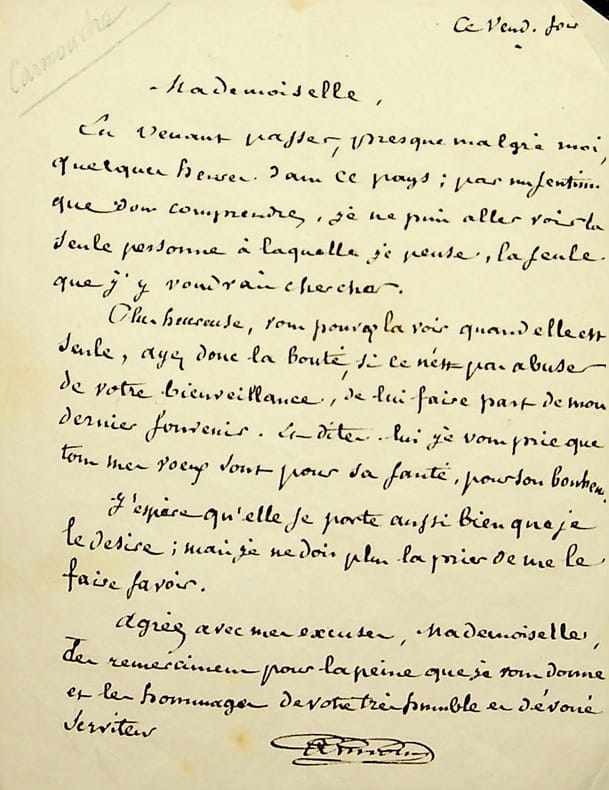 Carmouche
Ce Vend. soir
Mademoiselle,
En venant passer, presque malgré moi,
quelques heures dans ce pays; par un sentiment
que vous comprendrez, je ne puis aller voir la
seule personne à laquelle je pense, la seule
que j'y voudrais chercher.
Plus heureuse, vous pouvez la voir quand elle est
seule, ayez donc la bonté, si ce n'est pas abuser
de votre bienveillance, de lui faire part de mon
dernier souvenir. Et dites-lui je vous prie que
tous mes voeux sont pour sa santé, pour son bonheur.
J'espère qu'elle se porte aussi bien que je
le desire; mais je ne dois plus la prier de me le
faire savoir.
Agréez avec mes excuses, Mademoiselle,
des remerciemens pour la peine que je vous donne
et les hommages de votre très humble et dévoué
Serviteur